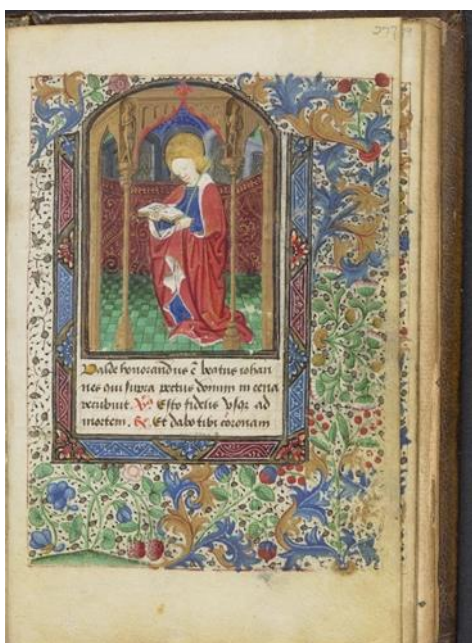 Valde honorandus ē beatus iohan
nes qui supra pectus domini in cena
recubuit. V̷ Esto fidelis vsqz ad
mortem. R̷ Et dabo tibi coronam